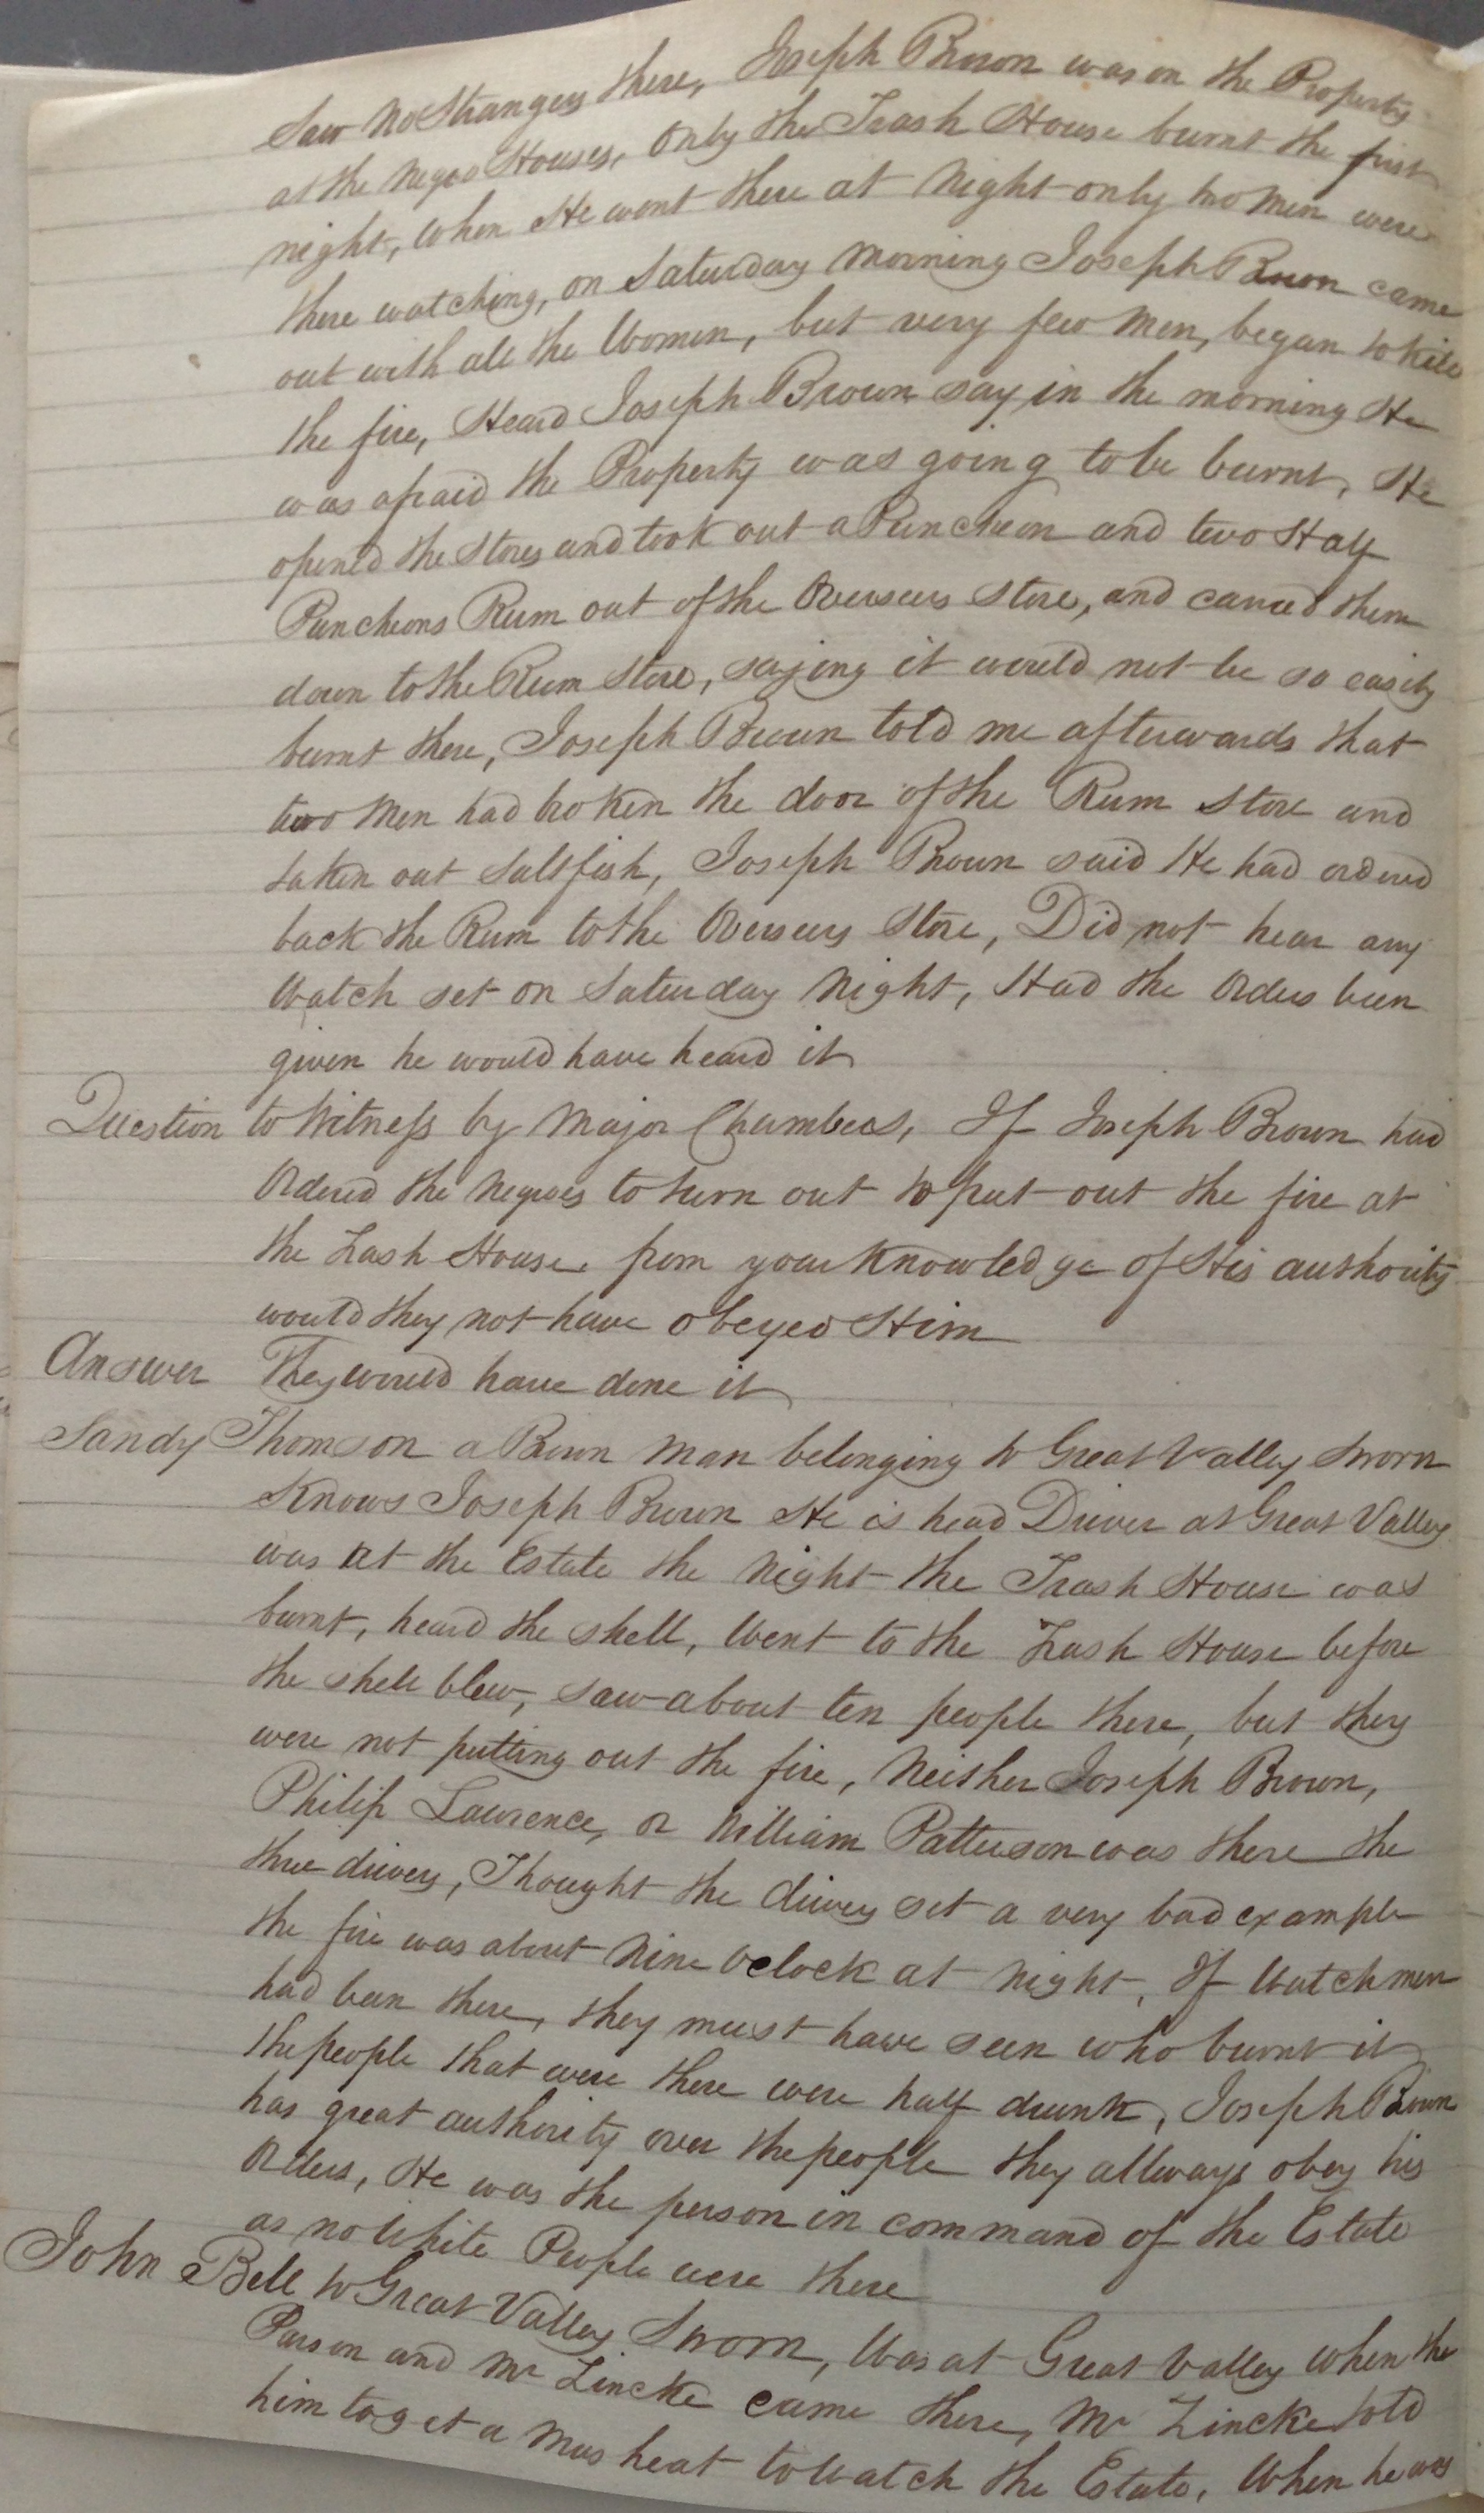 Saw no Strangers there, Joseph Brown was on the Property
at the Negro Houses, Only the Trash House burnt the first
night, When He went there at Night only two Men were
there watching, on Saturday Morning Joseph Brown came
out with all the Women, but very few Men, began to kill
the fire, Heard Joseph Brown say in the morning He
was afraid the Property was going to be burnt, He
opened the Stores and took out a Puncheon and two Half
Puncheons Rum out of the Overseers Store, and carried them
down to the Rum Store, saying it would not be so easily
burnt there, Joseph Brown told me afterwards that
two Men had broken the door of the Rum Store and
taken out Saltfish, Joseph Brown said He had ordered
back the Rum to the Overseers Store, Did not hear any
Watch set on Saturday Night, Had the Orders been
given he would have heard it
Question to Witness by Major Chambers, If Joseph Brown had
Ordered the Negroes to turn out to put out the fire at
the Trash House from your Knowledge of His authority
would they not have obeyed Him
Answer They would have done it
Sandy Thomson a Brown Man belonging to Great Valley Sworn
Knows Joseph Brown He is head Driver at Great Valley
was at the Estate the Night the Trash House was
burnt, heard the shell, Went to the Trash House before
the shell blew, saw about ten people there, but they
were not putting out the fire, Neither Joseph Brown,
Philip Lawrence, or William Patterson was there the
three drivers, Thought the drivers set a very bad example
the fire was about Nine Oclock at Night, If Watchmen
had been there, they must have seen who burnt it
the people that were there were half drunk, Joseph Brown
has great authority over the people they allways obey his
Orders, He was the person in command of the Estate
as no White People were there
John Bell to Great Valley Sworn, Was at Great Valley When the
Parson and Mr Lincke came there, Mr Lincke told
him to get a Musheat to Watch the Estate, When he was